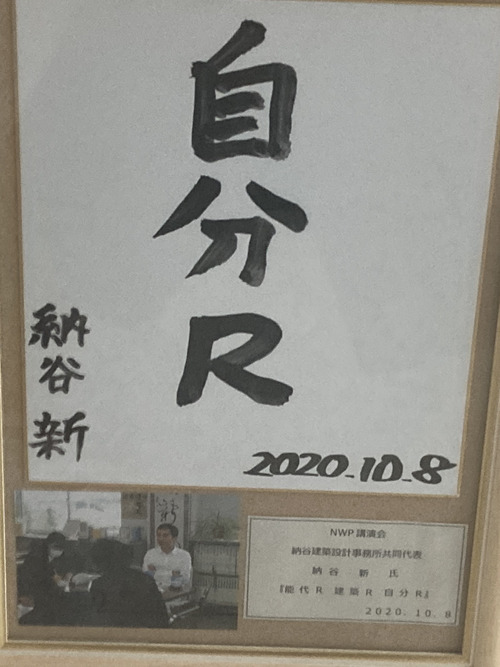 自分R
納谷新
2020.10.8
NWP講演会
納谷建築設計事務所共同代表
納谷 新 氏
『能代R 建築R 自分R』
2020.10.8